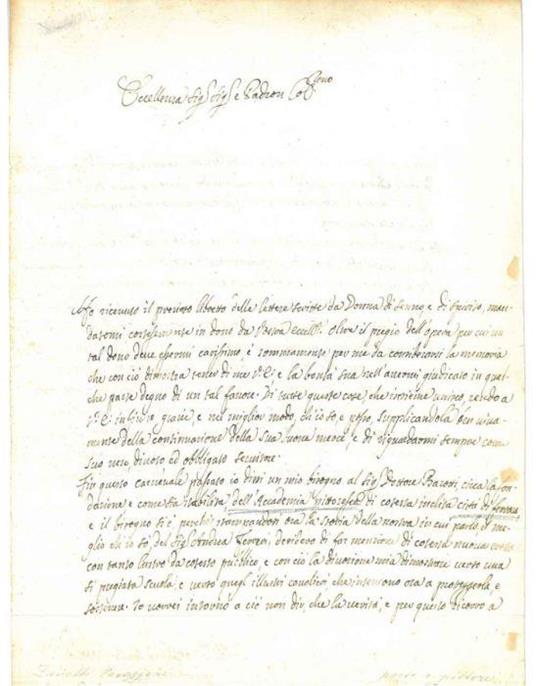 Eccellenza Sig.r Sig.r e Padron Col.mo
Ho ricevuto il prezioso libreto delle lettere scritte da Donna di senno, e di spirito, man-
datomi cortesemente in dono da Vostra Eccell: Oltre il pregio dell'opera per cui un
tal dono deve essermi carissimo è sommamente per me da considerarsi la memoria
che con ciò dimostra tener di me V.E: e la bontà sua nell'avermi giudicato in qual-
che parte degno di un tal favore. Di tutte queste cose, che insieme unisco, rendo a
V.E: infinite grazie, e nel miglior modo, ch'io so, e posso, supplicandola ben viva-
mente della continuazione della sua buona mercé, e di riguardarmi sempre come
suo vero divoto ed obbligato servitore.
Fin questo carnevale passato io divi un mio bisogno al Sig. Dottore circa la fon-
dazione e come sia stabilita dell'Accademia pittoresca di cotesta inclita città di
e il bisogno si è perché stampandosi ora la storia della nostra in cui parlo, il me-
glio ch'io so, del Sig. Andrea desidero di far menzione di cotesta nuova eretta
con tanto lustro da cotesto pubblico, e con ciò la divozione mia dimostrare verso una
sì pregiata scuola, e verso quegl'illustri cavalieri, che intendono ora a proteggerla, e
Io vorrei intorno a ciò non dir, che la verità, e per questo ricorro a
poeta e pittore